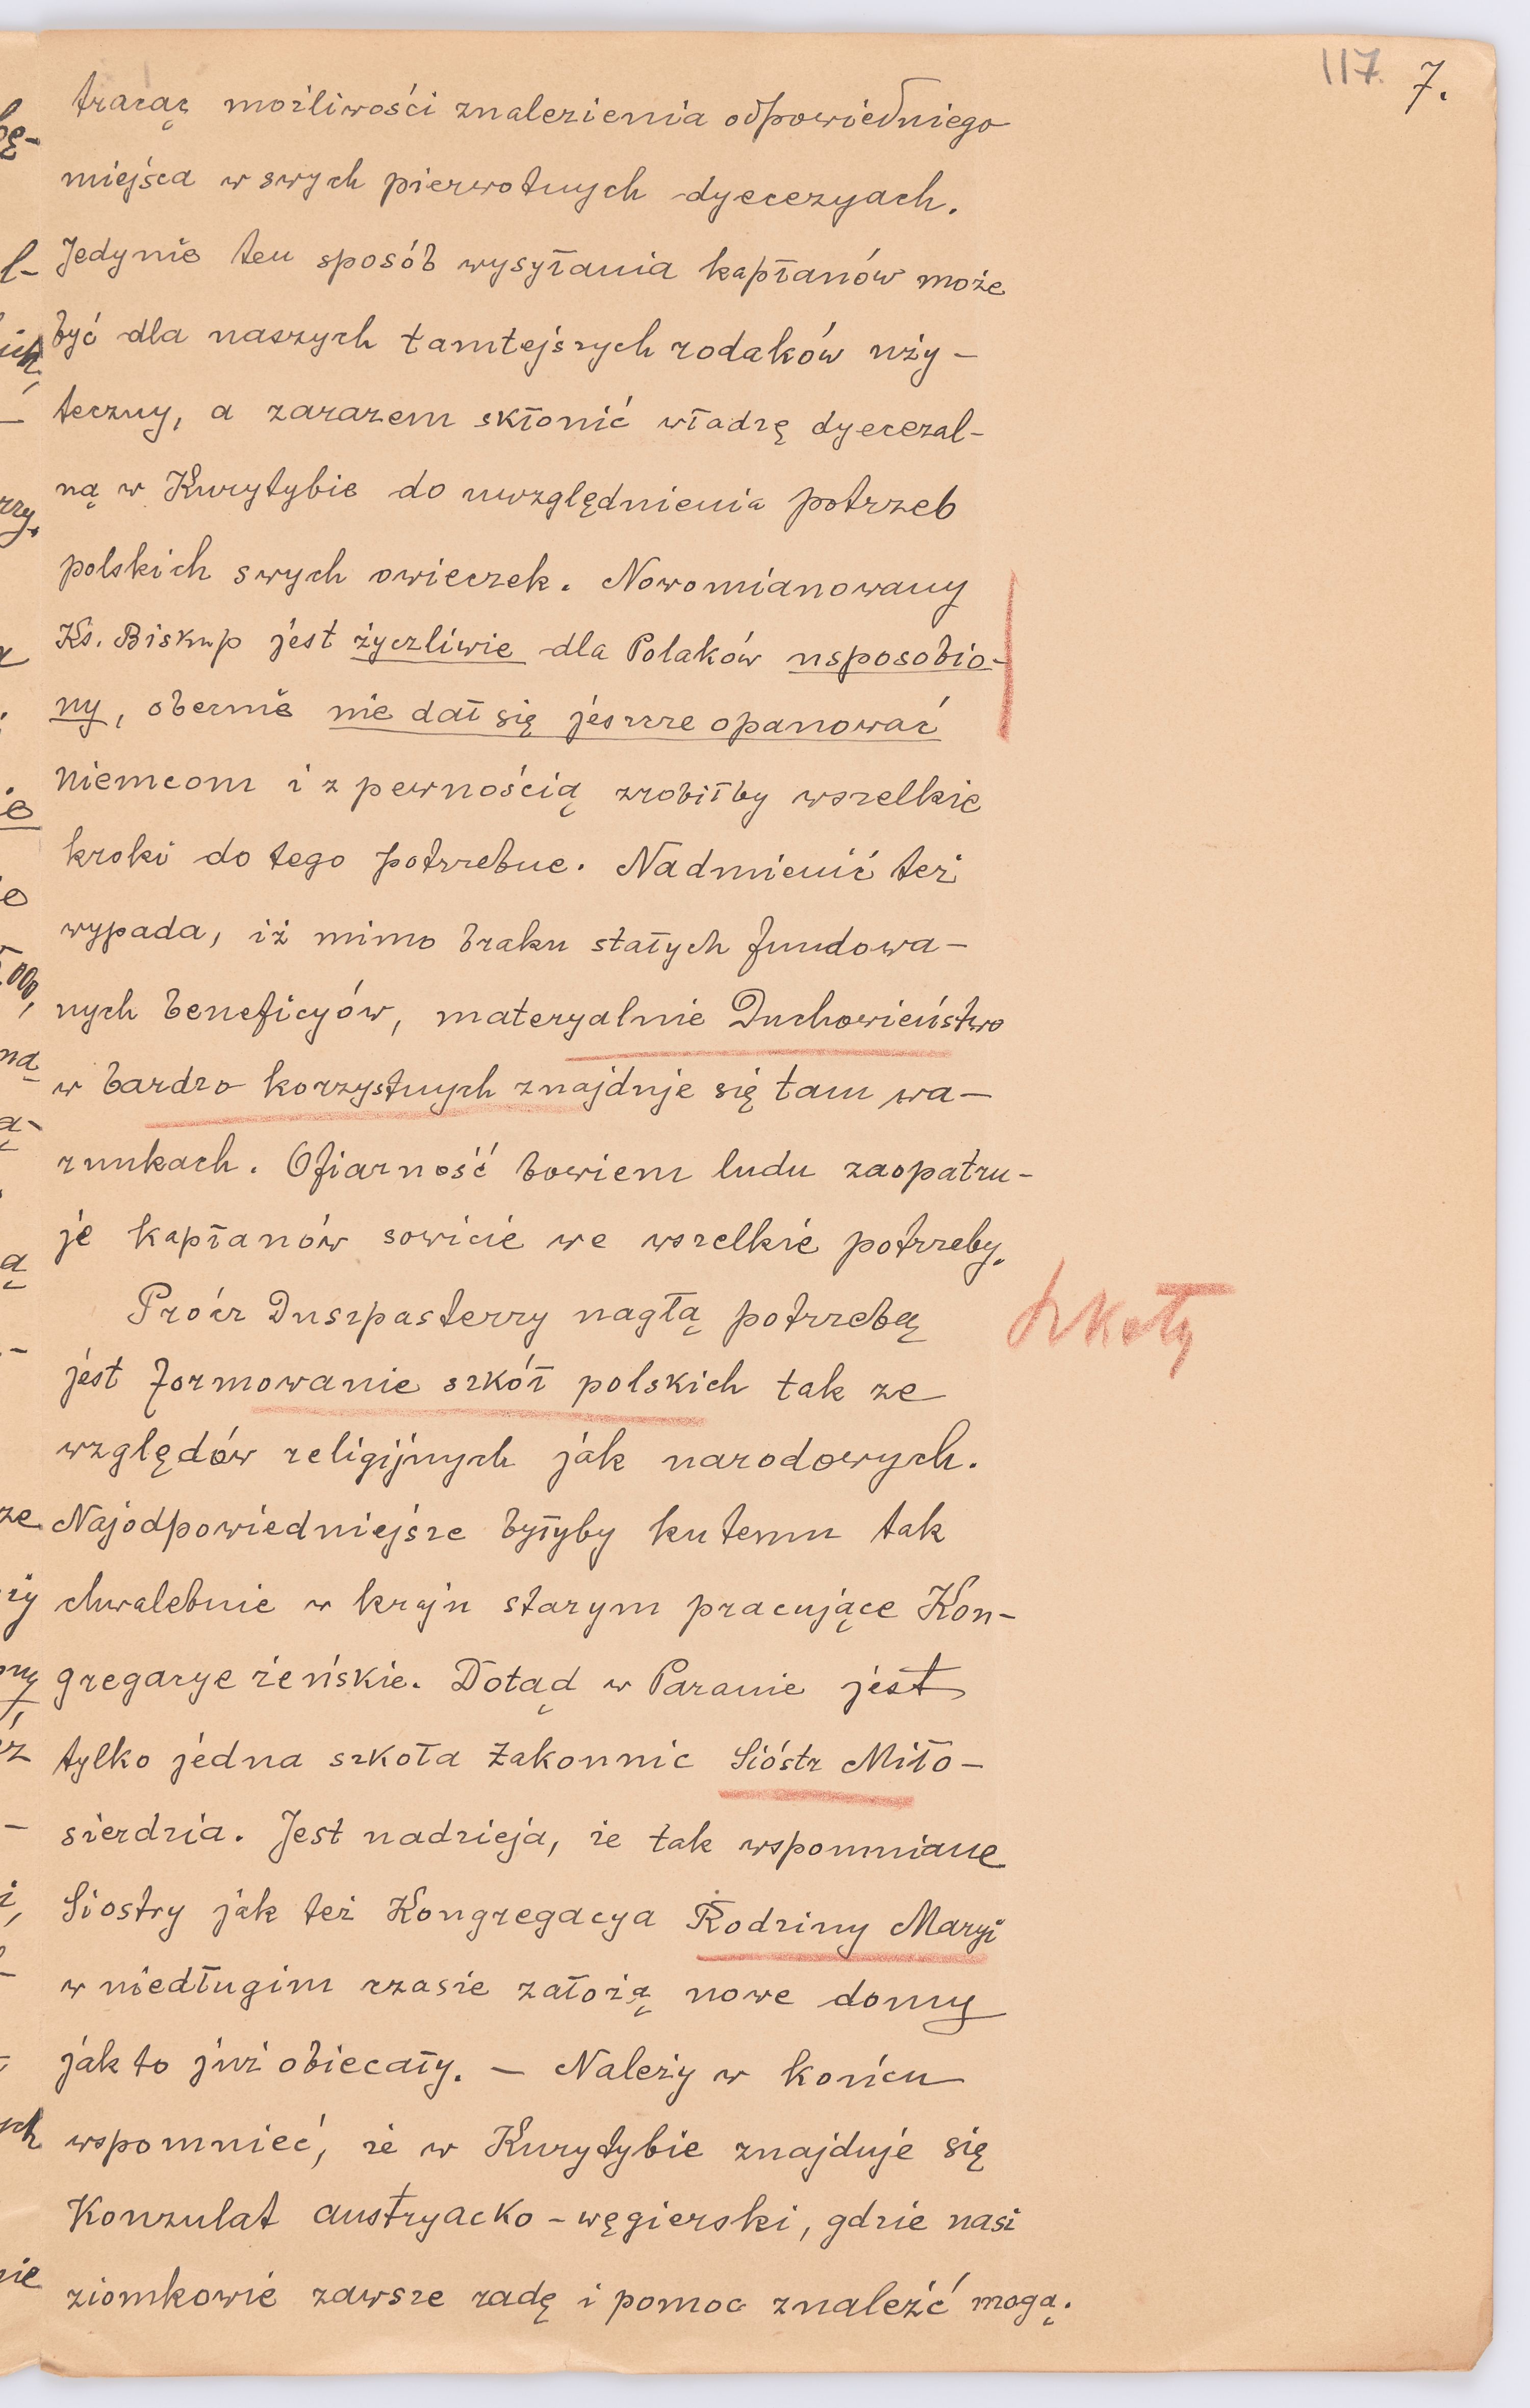 117. 7.
tracąc możliwości znalezienia odpowiedniego
miejsca w swych pierwotnych dyecezyach.
Jedynie ten sposób wysyłania kapłanów może
być dla naszych tamtejszych rodaków uży-
teczny, a zarazem skłonić władzę dyecezal-
ną w Kurytybie do uwzględnienia potrzeb
polskich swych owieczek. Nowomianowany
Ks. Biskup jest życzliwie dla Polaków usposobio-
ny, obecnie nie dał się jeszcze opanować
Niemcom i z pewnością zrobiłby wszelkie
kroki do tego potrzebne. Nadmienić też
wypada, iż mimo braku stałych fundowa-
nych beneficyów, materyalnie Duchowieństwo
w bardzo korzystnych znajduje się tam wa-
runkach. Ofiarność bowiem ludu zaopatru-
je kapłanów sowicie we wszelkie potrzeby.
Prócz Duszpasterzy nagłą potrzebą
szkoły
jest formowanie szkół polskich tak ze
względów religijnych jak narodowych.
Najodpowiedniejsze byłyby ku temu tak
chwalebnie w kraju starym pracujące Kon-
gregacye żeńskie. Dotąd w Paranie jest
tylko jedna szkoła Zakonnic Sióstr Miło-
sierdzia. Jest nadzieja, że tak wspomniane
Siostry jak też Kongregacya Rodziny Maryi
w niedługim czasie założą nowe domy
jak to już obiecały. — Należy w końcu
wspomnieć, że w Kurytybie znajduje się
Konzulat austryacko-węgierski, gdzie nasi
ziomkowie zawsze radę i pomoc znaleźć mogą.